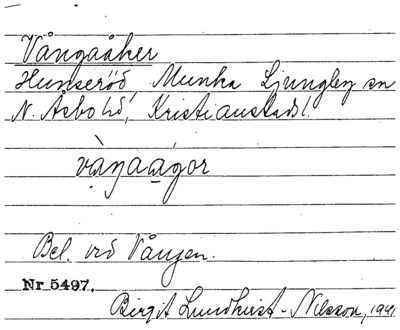 Vångaåker
Hunseröd, Munka Ljungby sn
N. Åsbo hd, Kristianstads l.
vàŋaágor
Bel. vid Vången.
Nr 5497.
Birgit Lundkvist-Nilsson, 1941